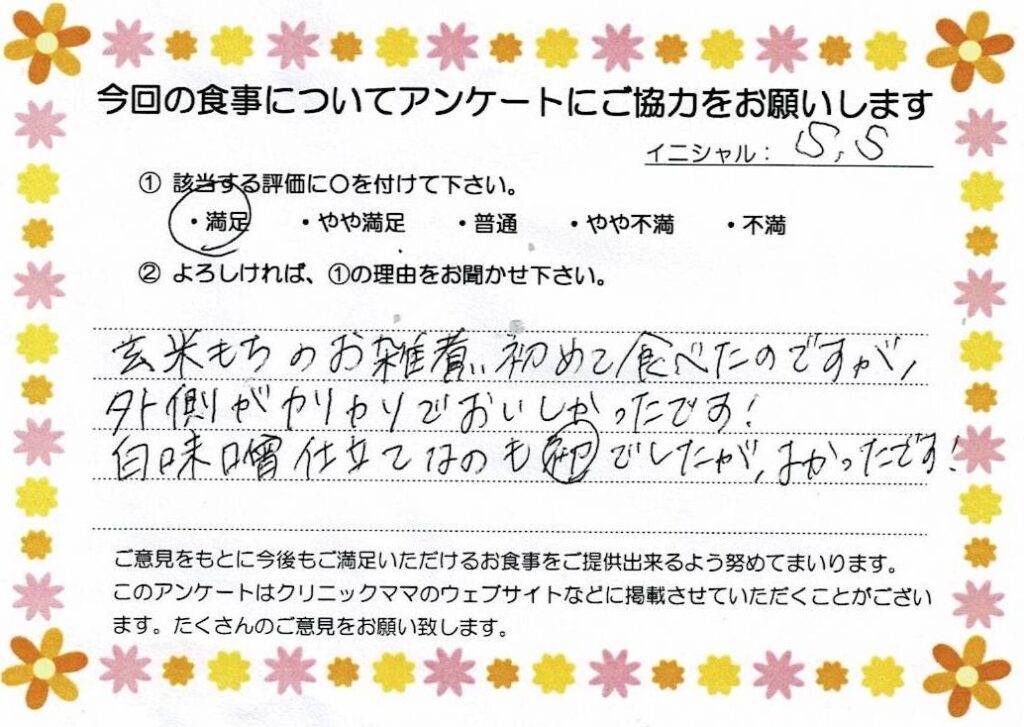 今回の食事についてアンケートにご協力をお願いします
イニシャル： S.S
① 該当する評価に〇を付けて下さい。
・満足 ・やや満足 ・普通 ・やや不満 ・不満
② よろしければ、①の理由をお聞かせ下さい。
玄米もちのお雑煮、初めて食べたのですが、
外側がカリカリでおいしかったです！
白味噌仕立てなのも初でしたが、よかったです！
ご意見をもとに今後もご満足いただけるお食事をご提供出来るよう努めてまいります。
このアンケートはクリニックママのウェブサイトなどに掲載させていただくことがござい
ます。たくさんのご意見をお願い致します。